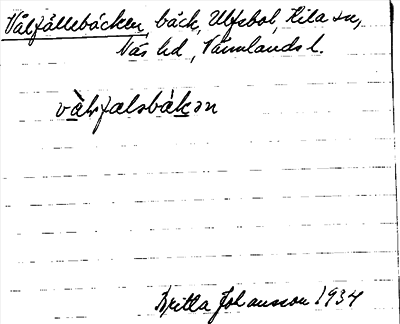 Vålfällebäcken, bäck, Ulfsbol, Kila sn,
Näs hd, Värmlands l.
våhvfalsbäkən
Britta Johansson 1934